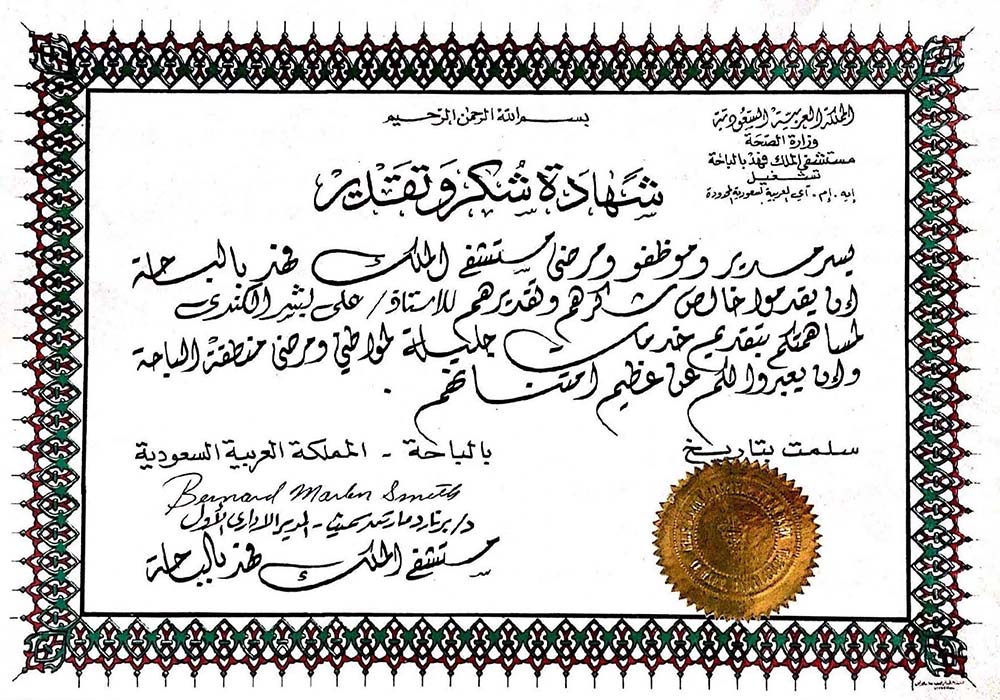 بسم الله الرحمن الرحيم
المملكة العربية السعودية
وزارة الصحة
مستشفى الملك فهد بالباحة
تشغيل
إيه . إم . آي العربية السعودية المحدودة
شهادة شكر وتقدير
يسر مدير وموظفو ومرضى مستشفى الملك فهد بالباحة
إن يقدموا خالص شكرهم وتقديرهم للاستاذ / على بشير الكندى
لمساهمتكم بتقديم خدمات جليلة لمواطني ومرضى منطقة الباحة
وإن يعبروا لكم عن عظيم امتنانهم .
سلمت بتاريخ
بالباحة - المملكة العربية السعودية
Bernard Marten Smith
د/ برنارد مارتن سميث - المدير الاداري الأول
مستشفى الملك فهد بالباحة